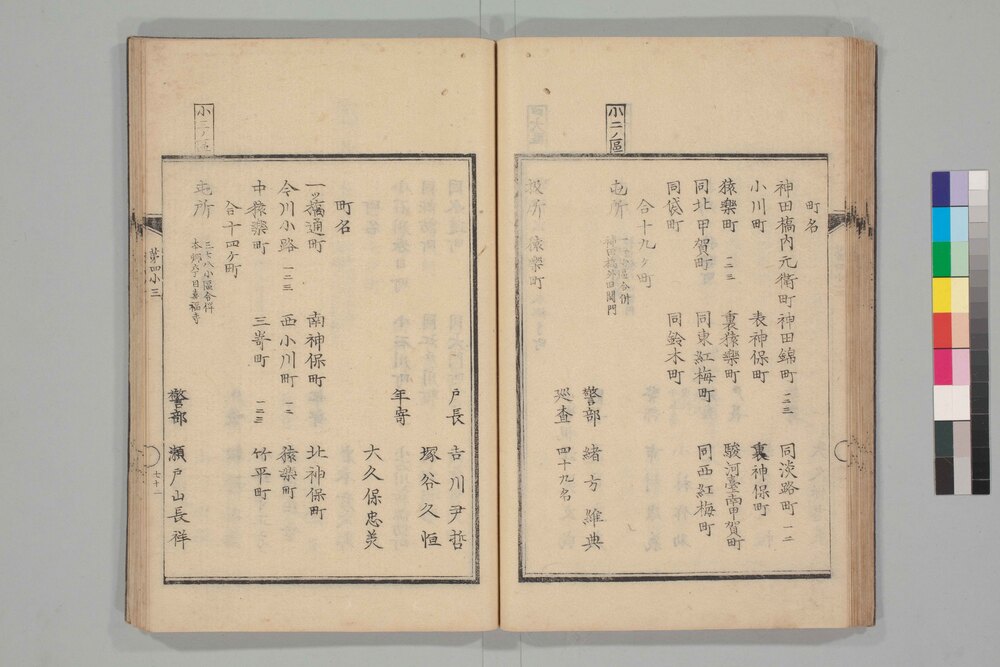 町名
神田橋内元衛町 神田錦町 一二三 同淡路町 一二
小川町 表神保町 裏神保町
猿樂町 一二三 裏猿樂町 駿河臺南甲賀町
同北甲賀町 同東紅梅町 同西紅梅町
同袋町 同鈴木町
合十九ヶ町
小二ノ區
屯所
神田橋外四関門
警部 緒方維典
廵査 四十九名
扱所 猿樂町
戸長 吉川尹哲
塚谷久恒
年寄
大久保忠美
町名
一ツ橋通町 南神保町 北神保町
今川小路 一二三 西小川町 一二 猿樂町
中猿樂町 三嵜町 一二三 竹平町
合十四ヶ町
小三ノ區
屯所 三七八小區合併
本郷
警部 瀬戸山長祥
第四小三
七十一